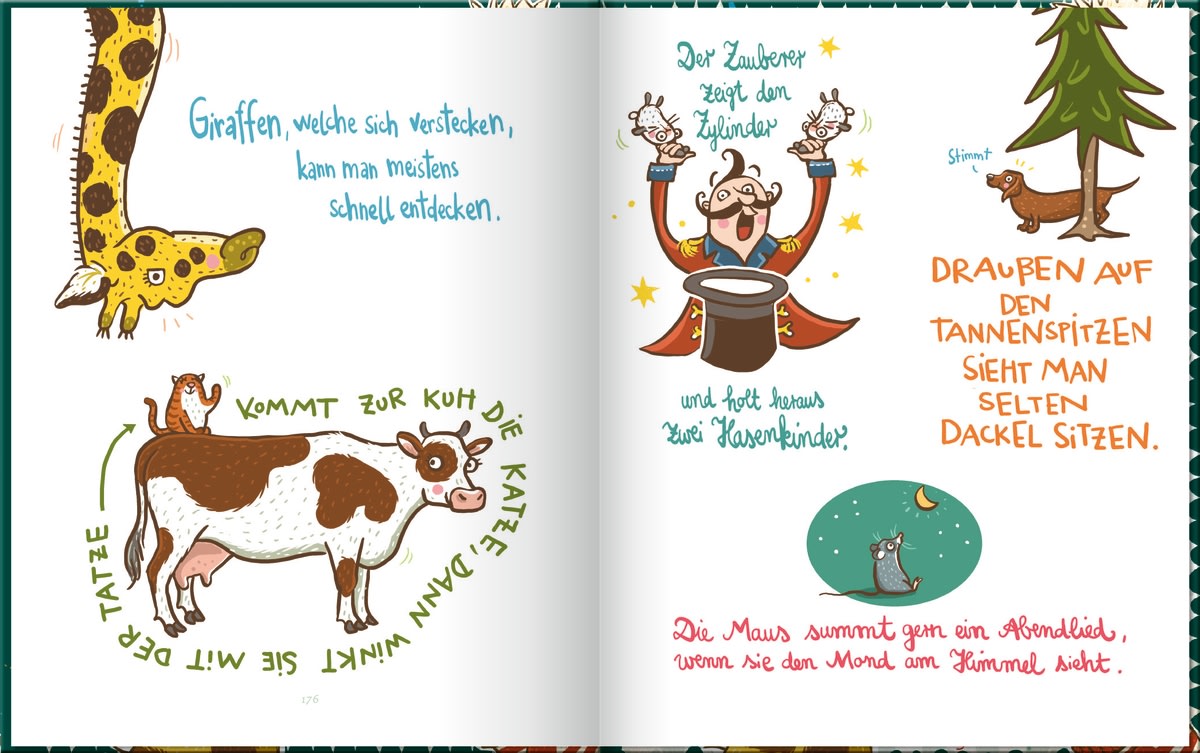 Giraffen, welche sich verstecken,
kann man meistens
schnell entdecken.
KOMMT ZUR KUH DIE KATZE, DANN WINKT SIE MIT DER TATZE
176
Der Zauberer
zeigt den
Zylinder
und holt heraus
zwei Hasenkinder.
Stimmt
DRAUßEN AUF
DEN
TANNENSPITZEN
SIEHT MAN
SELTEN
DACKEL SITZEN.
Die Maus summt gern ein Abendlied,
wenn sie den Mond am Himmel sieht.